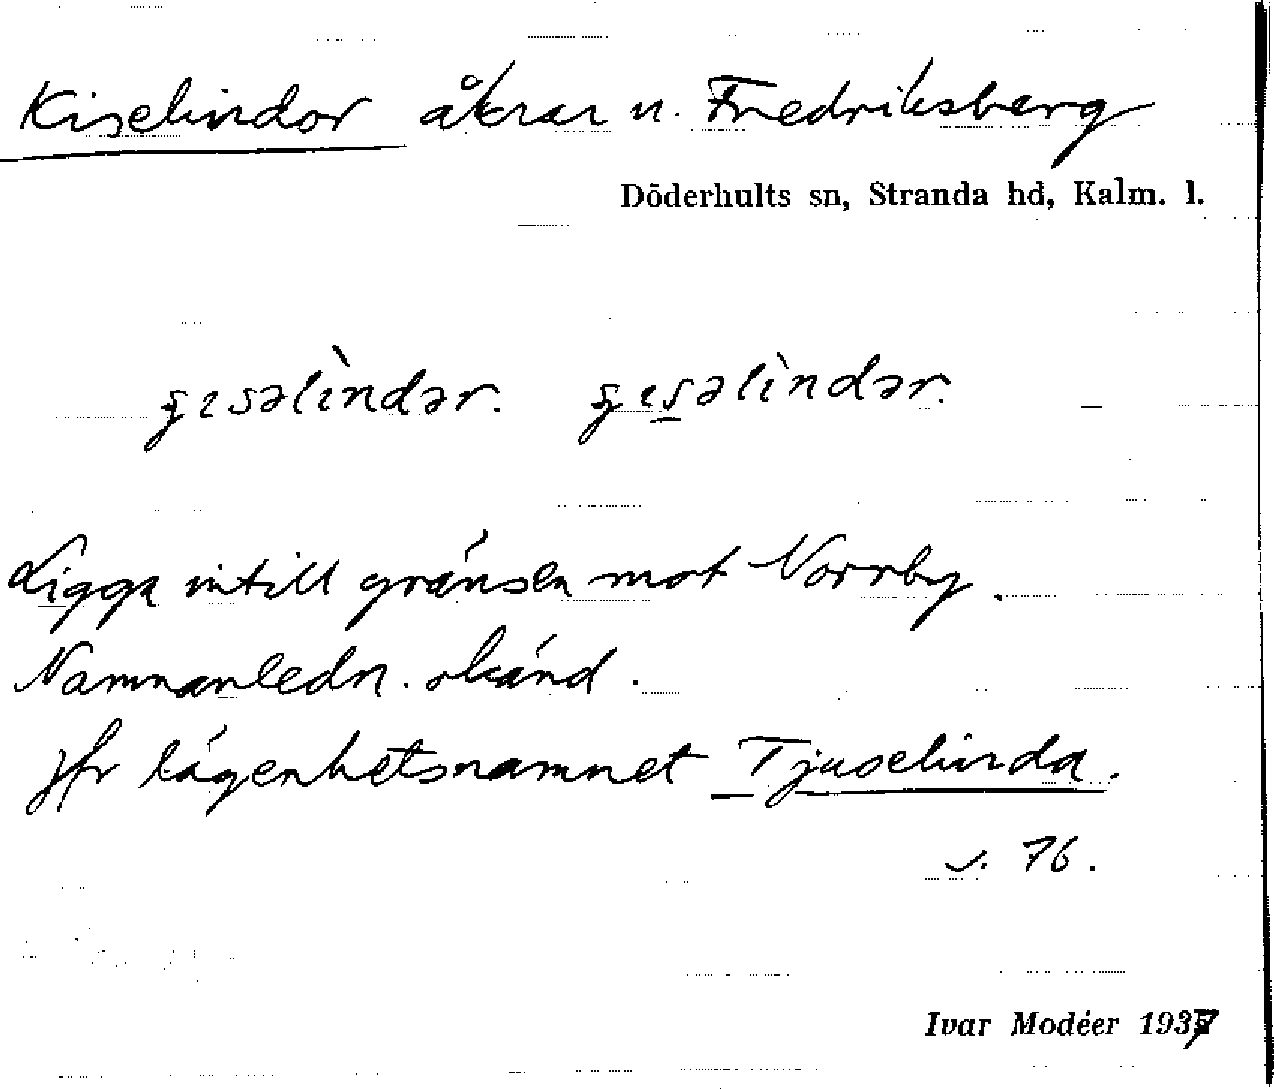 Kiselindor åkrar u. Fredriksberg
Döderhults sn, Stranda hd, Kalm. l.
Ligga intill gränsen mot Norrby.
Namnanledn. okänd.
jfr lägenhetsnamnet Tjuselinda.
s. 76.
Ivar Modéer 1937